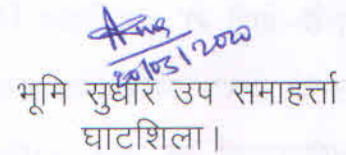 20/03/2020
भूमि सुधार उप समाहर्त्ता
घाटशिला।